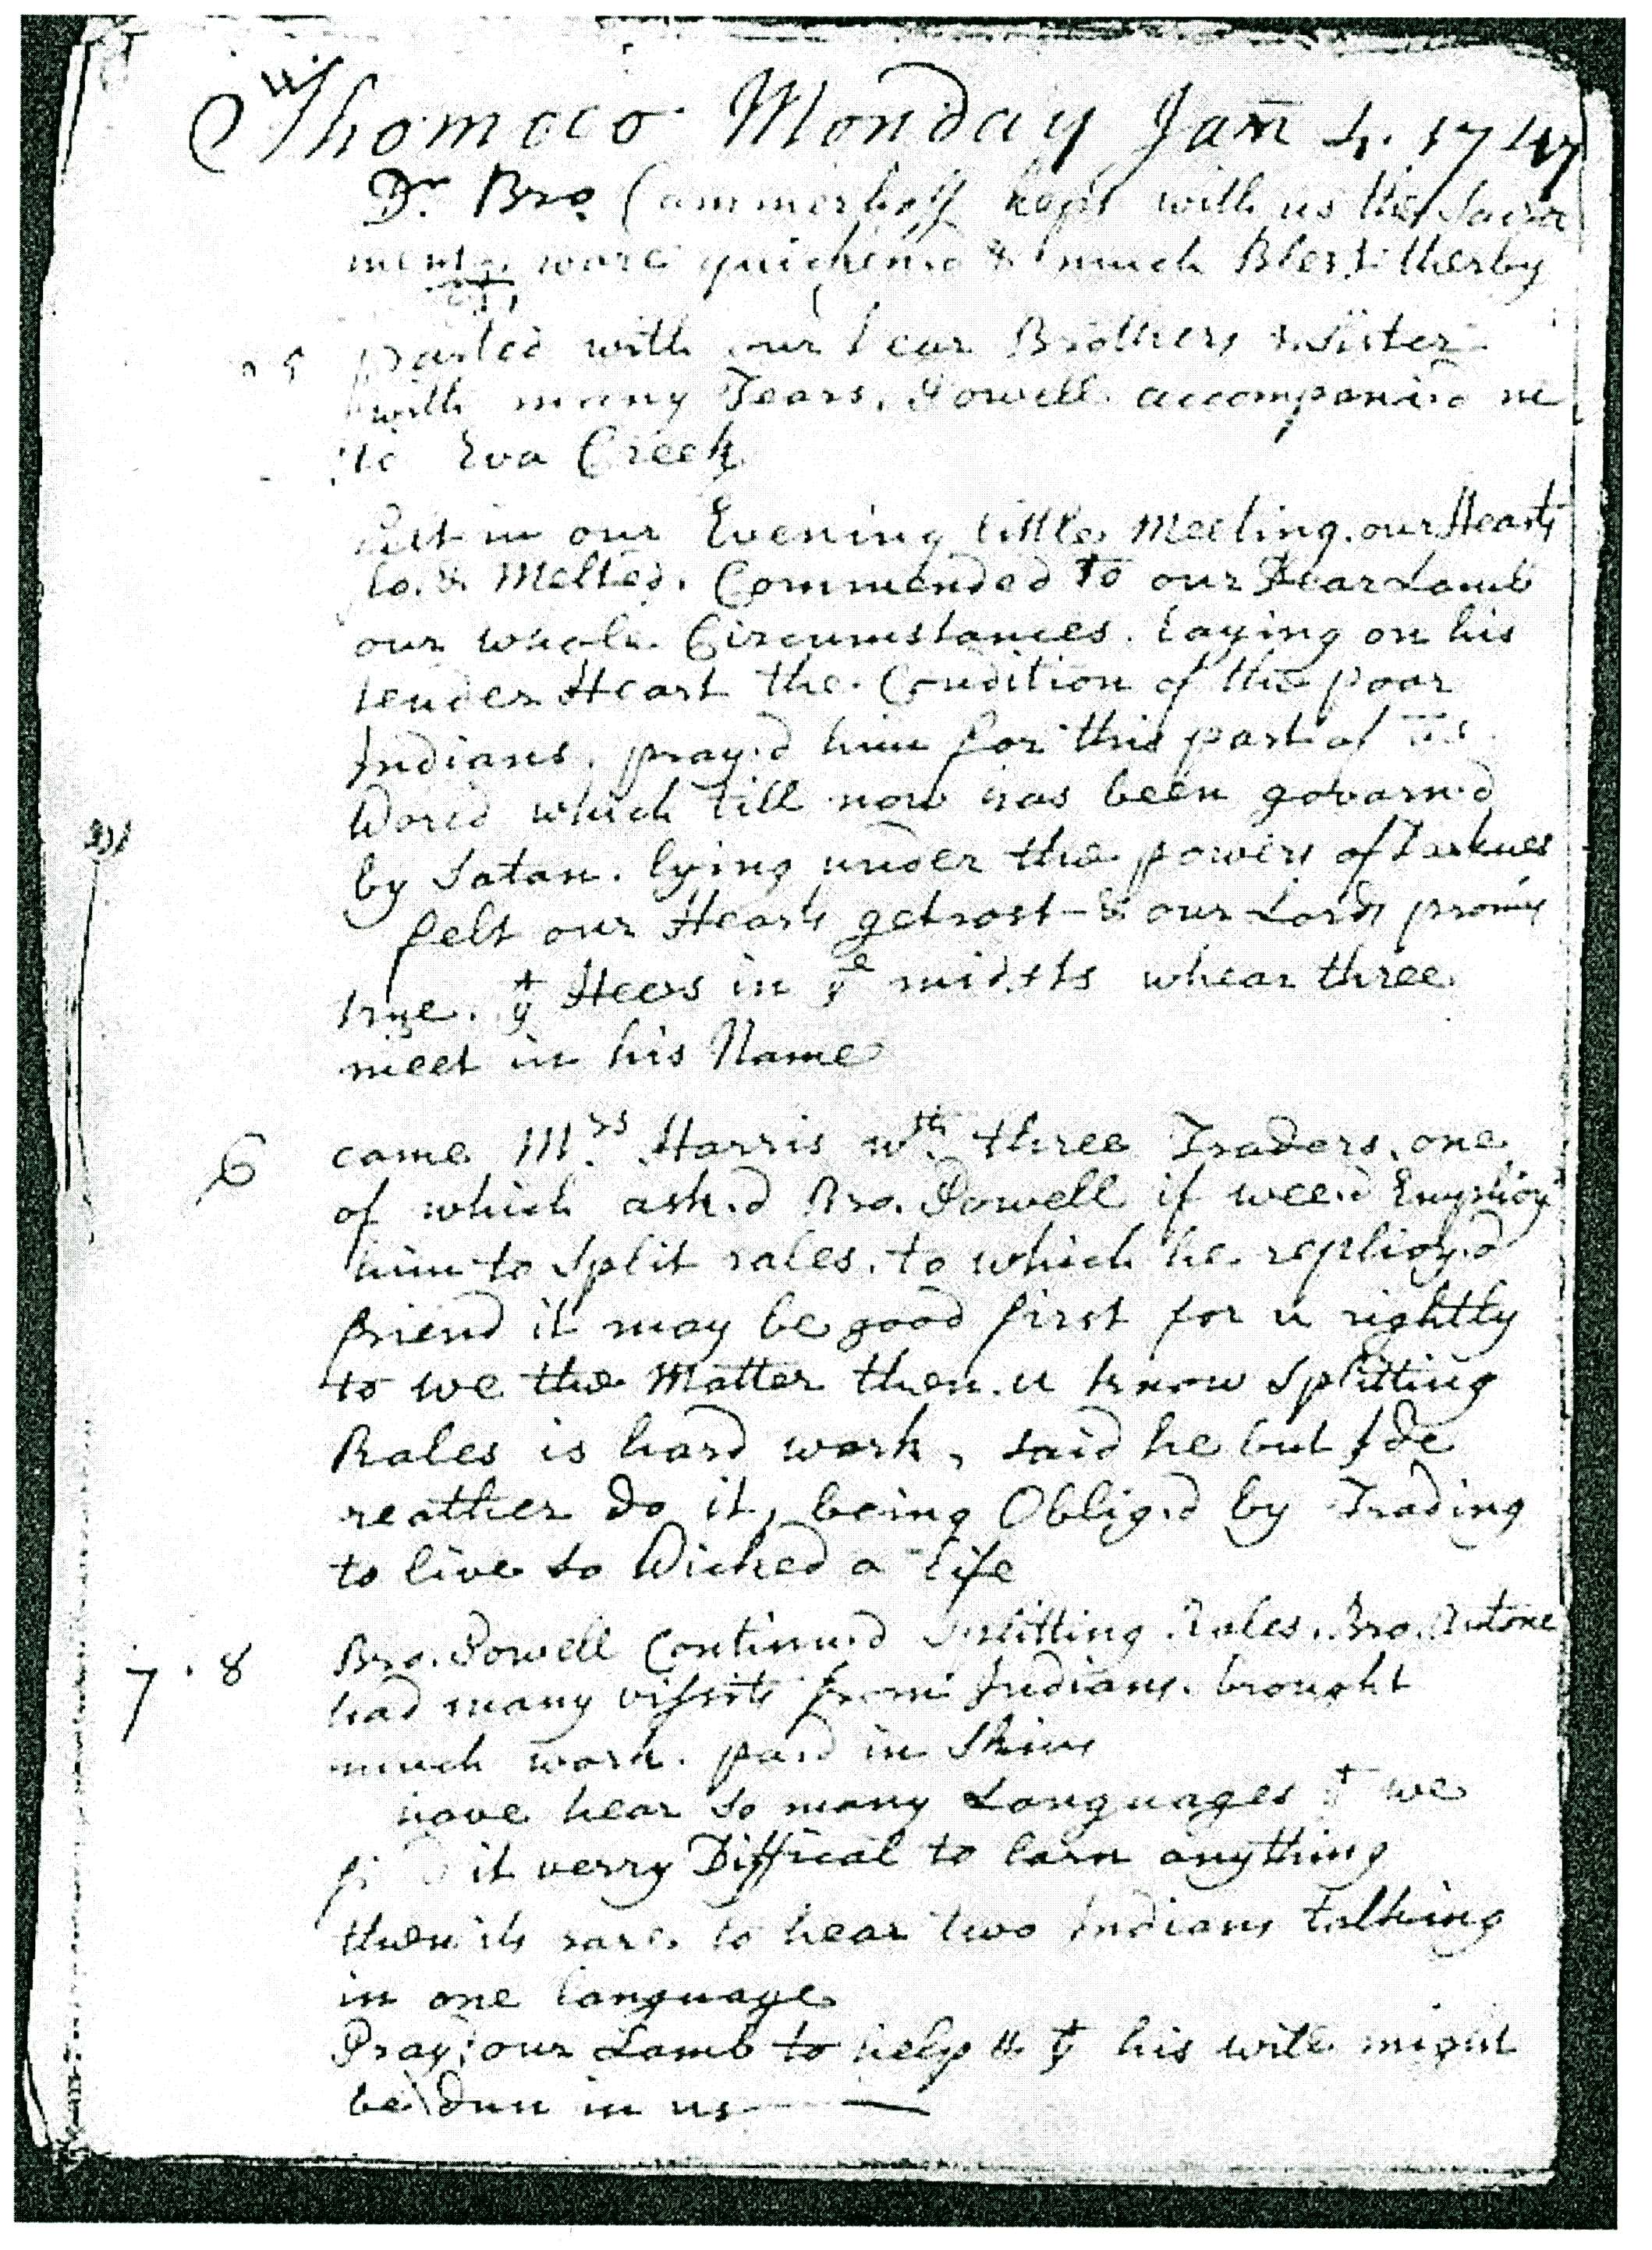 Thomoco Monday Jan 4. 1747
Dr Bro Cammerhoff kept with us the Sacra
ment. ware quicken'd & much Blest therby
5 parted with our Dear Brothers & Sister
with many Tears. Powell accompani'd
to Eva Creek
Felt in our Evening little Meeting. our Hearts
& Melted. Commended to our Dear Lamb
our whole Circumstances. laying on his
tender Heart the Condition of the poor
Indians. pray'd him for this part of
World which till now has been govarn'd
by Satan. lying under the powers of Darknes
felt our Hearts getrost & our Lords promis
true. yt Hees in ye midsts whear three
meet in his Name
6 came Mrs Harris wth three Traders. one
of which ask'd Bro. Powell if wee'd Employ
him to Split rales. to which he reploy'd
friend it may be good first for u rightly
to we the Matter then. u know Splitting
Rales is hard work, said he but Ide
reather do it, being Oblig'd by Trading
to live so Wicked a life
7. 8 Bro. Powell Continu'd Splitting Rales. Bro. Antone
had many vissits from Indians. brought
much work. paid in Skins
have hear so many Languages yt we
find it verry Diffical to larn anything
then its rare to hear two Indians talking
in one language
Pray'd our Lamb to help us yt his will might
be dun in us